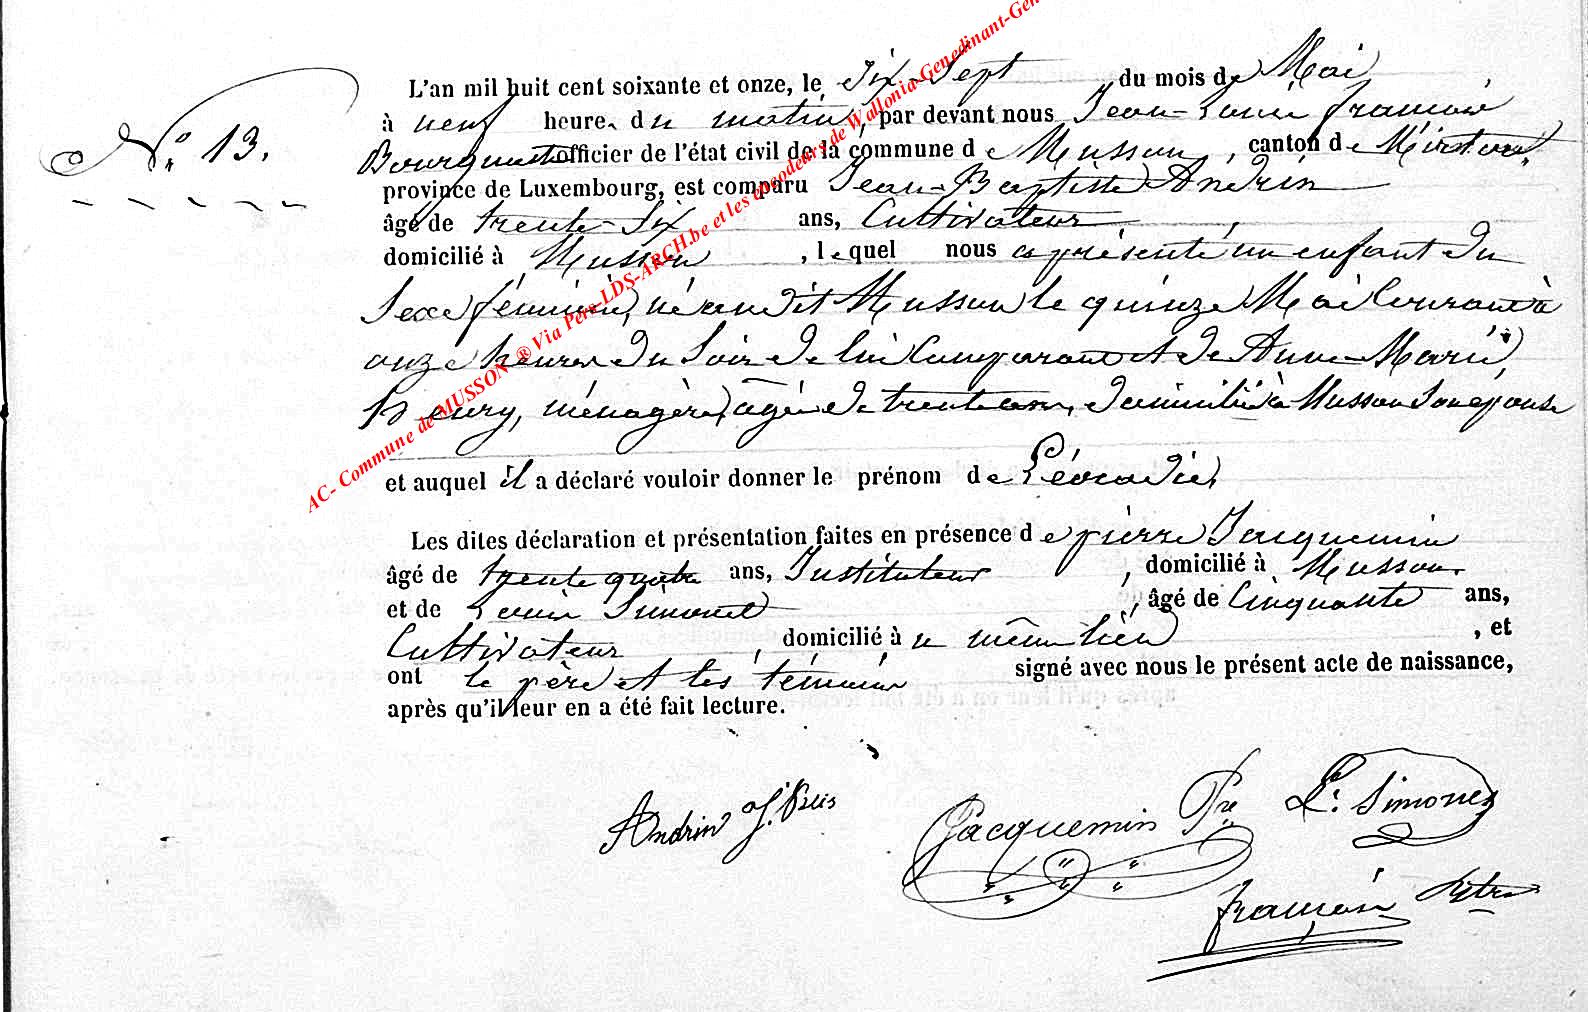 N.° 13.
L'an mil huit cent soixante et onze, le dix-Sept du mois de Mai,
à neuf heure du matin, par devant nous Jean-Louis françois
officier de l'état civil de la commune de Musson, canton de
province de Luxembourg, est comparu Jean-Baptiste Andrin
âgé de trente-Six ans, Cultivateur
domicilié à Musson, lequel nous a présenté un enfant du
Sexe féminin, né audit Musson le quinze Mai Courant à
onze heures du Soir de lui Comparant et de Anne-Marie,
Henry, ménagère, agée de trente ans, domiciliée à Musson Son épouse
et auquel il a déclaré vouloir donner le prénom de Léocadie,
Les dites déclaration et présentation faites en présence de pierre Jacquemin
âgé de trente quatre ans, Instituteur, domicilié à Musson
et de Louis Simonet, âgé de Cinquante ans,
Cultivateur, domicilié à même lieu, et
ont le père et les témoins signé avec nous le présent acte de naissance,
après qu'il leur en a été fait lecture.
Andrin J. Btis
Jacquemin Pre
L.s Simonet
françois
AC- Commune de MUSSON ® Via Pere-LDS-ARCH.be et les encodeurs de Wallonia-Genedinant-Gen